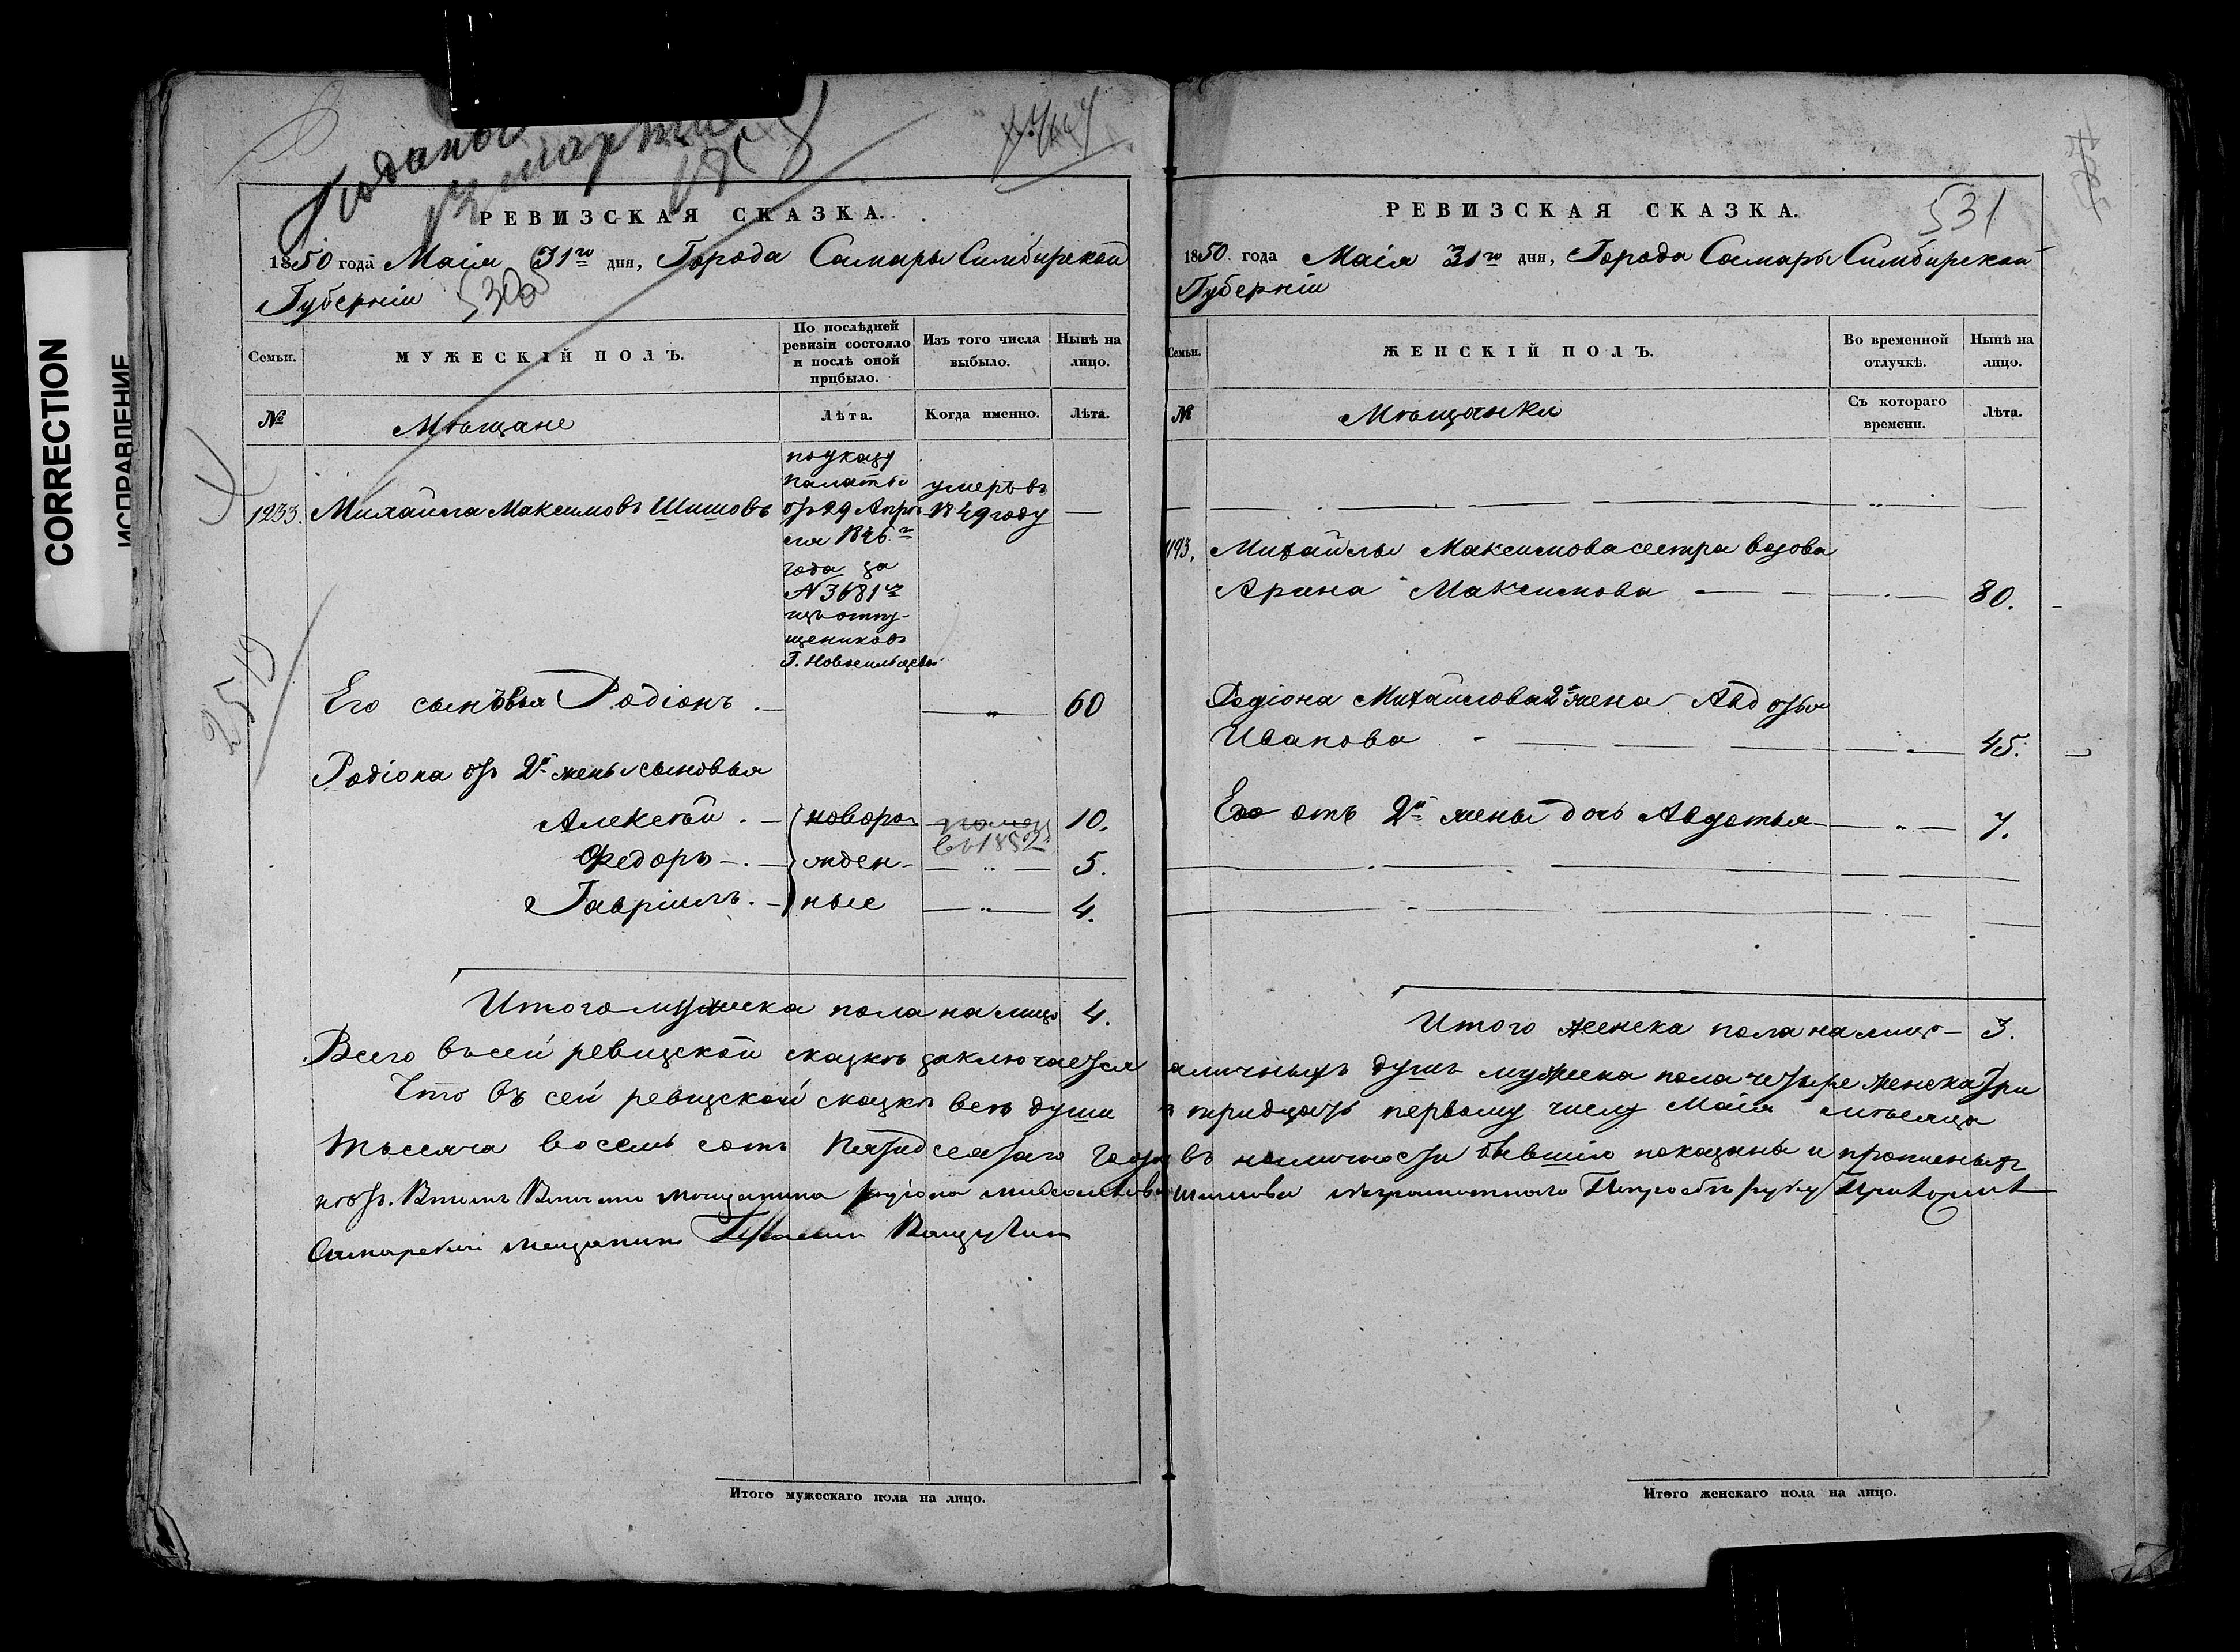 CORRECTION
ИСПРАВЛЕНИЕ
Поданы
13 марта
РЕВИЗСКАЯ СКАЗКА.
1850 года Маія 31го дня, Города Самары Симбирской
Губерніи 530
Семьи.
МУЖЕСКІЙ ПОЛЪ.
По послѣдней ревизіи состояло и послѣ оной прибыло.
Изъ того числа выбыло.
Нынѣ на лицо.
№
Мѣщане
Лѣта.
Когда именно.
Лѣта.
1233. Михайла Максимовъ Шишовъ
по указу
палаты
отъ 29 Апрѣ-
ля 1846го
года за
№ 3681м
изъ отпу-
щениковъ
Г. Новосильцевой
умеръ въ
1849 году —
Его сыновья Родіонъ — „ — 60
Родіона отъ 2й жены сыновья
Алексѣй — новоро- 10.
въ 1852
Федоръ — жден- — „ — 5.
Гавріилъ — ные — „ — 4.
Итого мужеска пола на лицо 4.
РЕВИЗСКАЯ СКАЗКА.
531
1850 года Маія 31го дня, Города Самары Симбирской
Губерніи
Семьи.
ЖЕНСКІЙ ПОЛЪ.
Во временной отлучкѣ.
Нынѣ на лицо.
№
Мѣщанки
Съ котораго времени.
Лѣта.
Михайлы Максимова сестра вдова
Арина Максимова — 80.
Родіона Михайлова 2я жена Авдотья
Иванова — 45.
Его отъ 2й жены дочь Авдотья — „ — 7.
Итого женска пола на лицо — 3.
Всего въ сей ревизской сказкѣ заключается наличныхъ душъ мужеска пола четыре женска три
Что въ сей ревизской сказкѣ всѣ души къ тридцать первому числу Маія мѣсяца
тысяча восемь сотъ пятидесятаго года въ наличности бывшіе показаны и прописныхъ
нѣтъ. мещанина Родіона Михайлова Шишова неграмотнаго по просьбѣ руку приложилъ
Самарский мещанин
Итого мужескаго пола на лицо.
Итого женскаго пола на лицо.